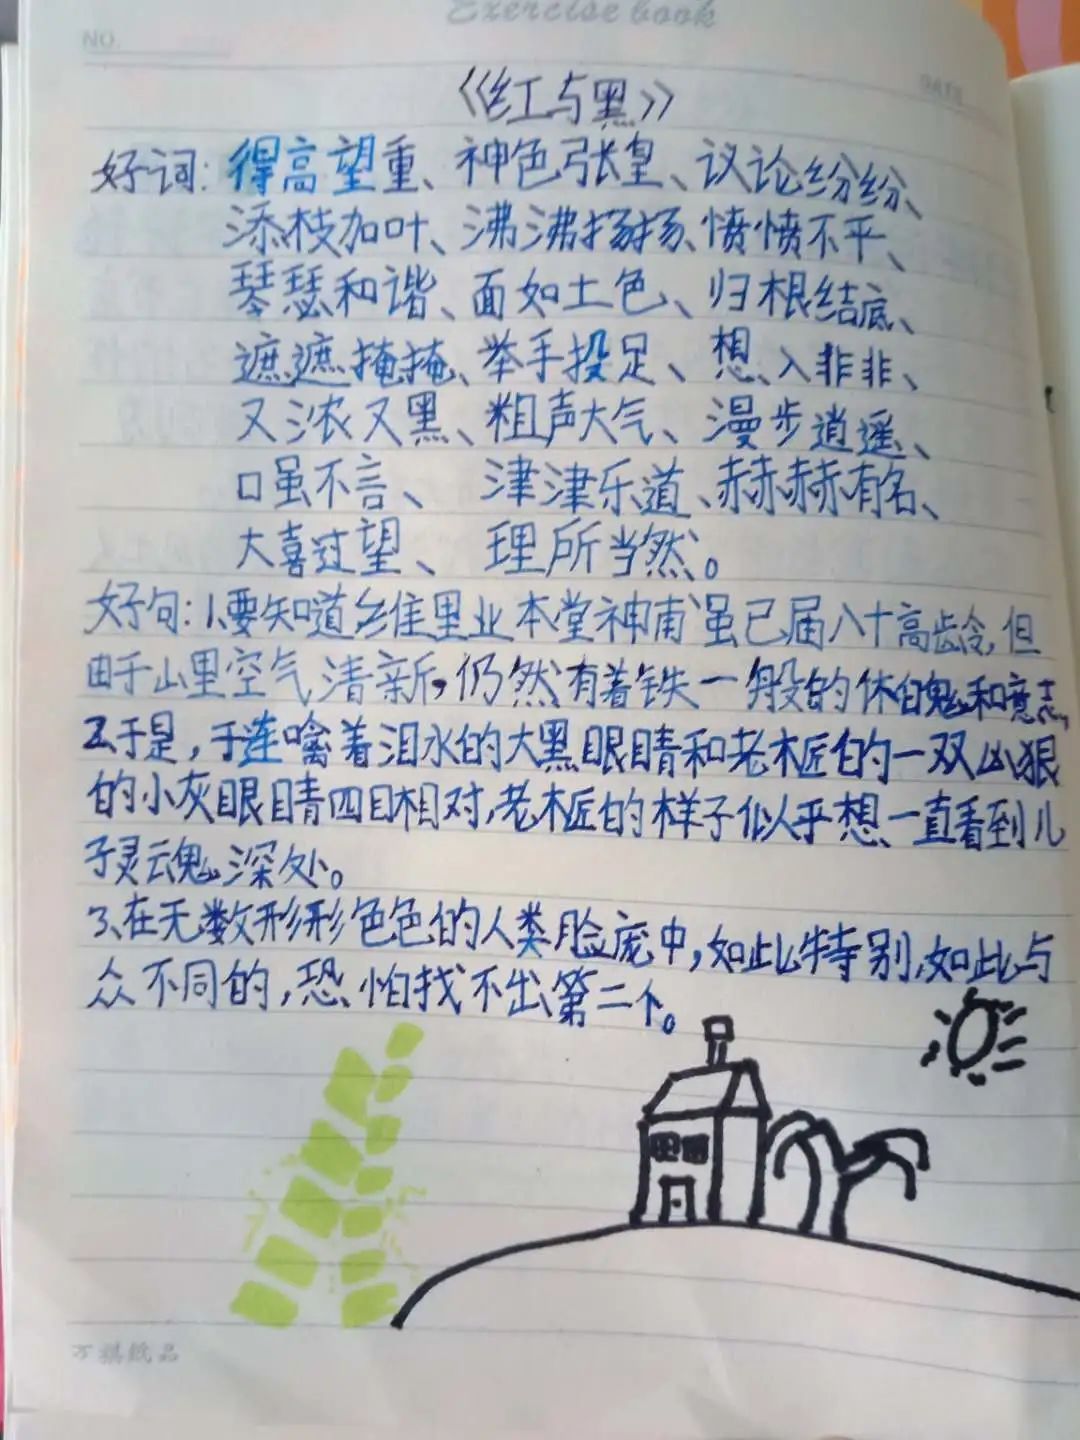 Exercise book
NO.
DATE
《红与黑》
好词：得高望重、神色张皇、议论纷纷、
添枝加叶、沸沸扬扬、愤愤不平、
琴瑟和谐、面如土色、归根结底、
遮遮掩掩、举手投足、想入非非、
又浓又黑、粗声大气、漫步逍遥、
口虽不言、津津乐道、赫赫有名、
大喜过望、理所当然。
好句：1、要知道维里业本堂神甫虽已届八十高龄，但
由于山里空气清新，仍然有着铁一般的体魄和意志。
2、于是，于连噙着泪水的大黑眼睛和老木匠的一双凶狠
的小灰眼睛四目相对，老木匠的样子似乎想一直看到儿
子灵魂深处。
3、在无数形形色色的人类脸庞中，如此特别，如此与
众不同的，恐怕找不出第二个。
万祺纸品